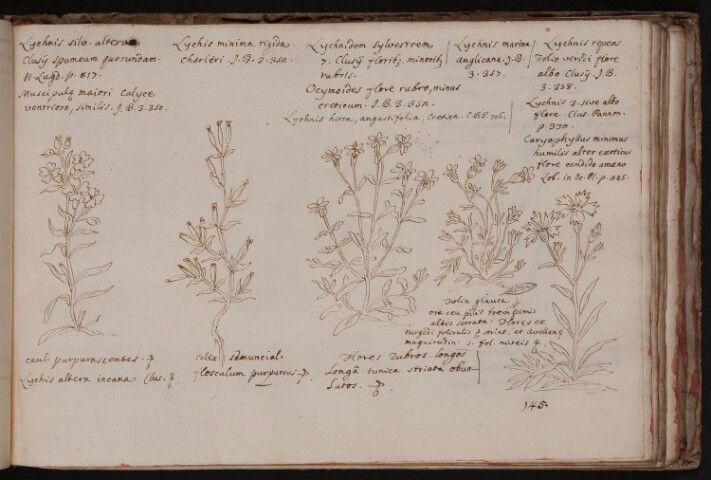 Lychnis silv. altera
Clusij spumeum quorundam.
H Lugd. p. 817.
Muscipulę maiori Calyce
ventrioso, similis. J.B.3.350.
Lychis minima rigida
cherleri J.B. 3. 350.
Lychnidem sylvestrem
7. Clusij floribꝫ minoribꝫ
rubris.
Ocymoides flore rubro, minus
creticum. J.B.3.
Lychnis hirta, angustifolia, Cretica. C.B.P. 206.
Lychnis marina
anglicana. J.B.
3. 357.
Lychnis repens
Folio viridi flore
albo Clusij. J.B.
3. 358.
Lychnis 2. sive albo
flore. Clus. Pannon.
p. 330.
Caryophyllus minimus
humilis alter exoticus
flore candido amœno
Lob. in ic. p. 445.
Folia glauca
ora ceu pilis brevissimis
albis serrata. Flores ex
turgidi foliculis et Avellanę
magnitudin. s. fol. niveis
caul. purpurascentes.
Lychis altera incana Clus.
calix
flosculum purpureus
Flores Rubros. longos
Longâ tunica striata obvo-
lutos.
145.